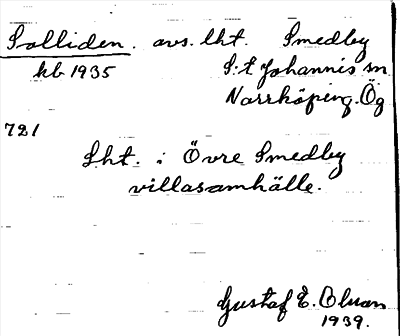 Solliden. avs. lht. Smedby
kb 1935 S:t Johannis sn
Norrköping. Ög
721
Lht. i Övre Smedby
villasamhälle.
Gustaf E. Olson
1939.